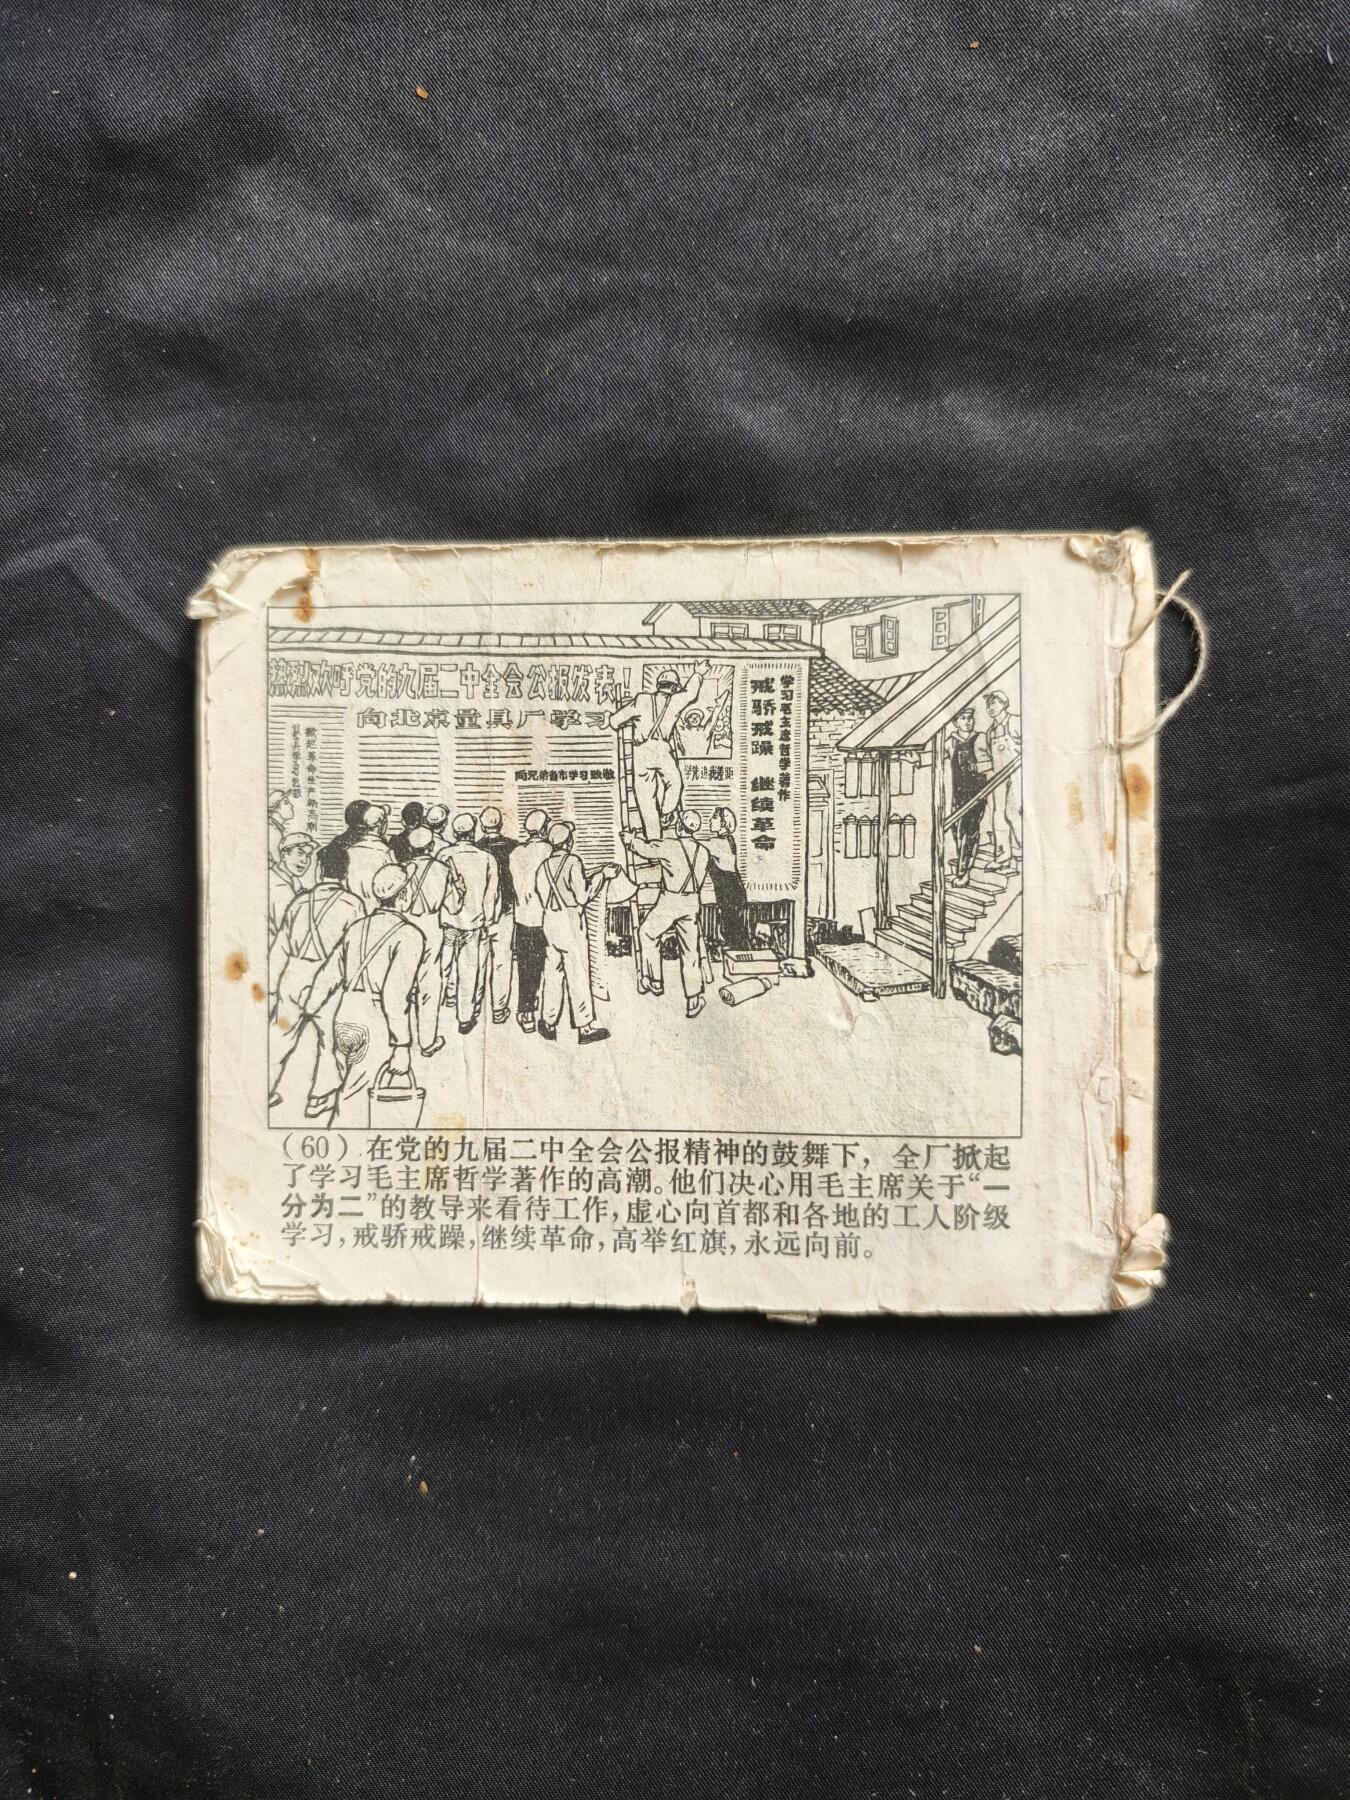 热烈欢呼党的九届二中全会公报发表!
向北京量具厂学习
掀起革命生产新高潮
向兄弟省市学习致敬
学习毛主席哲学著作
戒骄戒躁 继续革命
(60) 在党的九届二中全会公报精神的鼓舞下, 全厂掀起
了学习毛主席哲学著作的高潮。他们决心用毛主席关于“一
分为二”的教导来看待工作, 虚心向首都和各地的工人阶级
学习, 戒骄戒躁, 继续革命, 高举红旗, 永远向前。